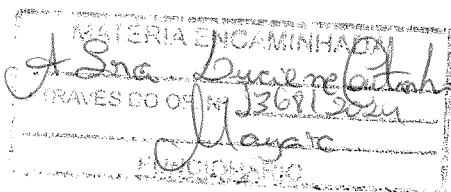 MATERIA ENCAMINHADA
A Sra. Luciene
TRAVES DO OF. Nº 1368/2024
FUNCIONÁRIO